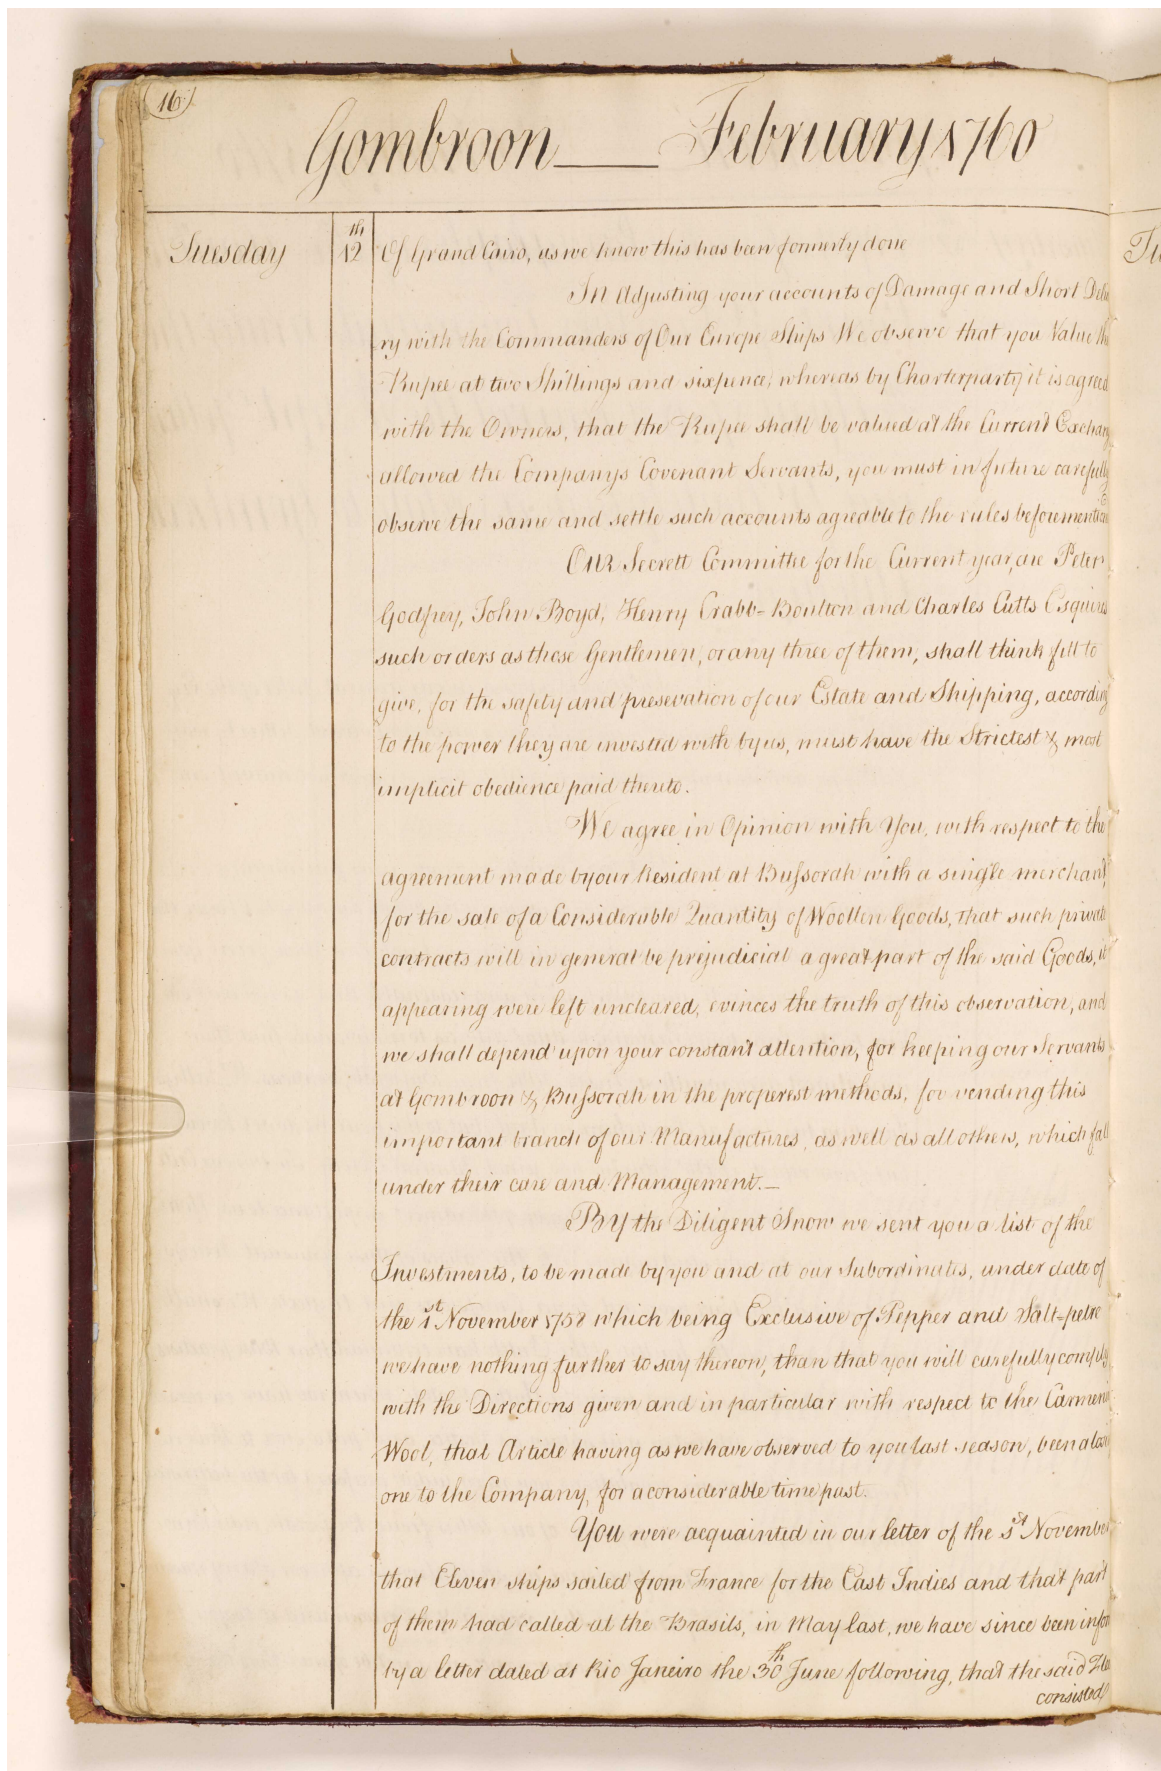 16
Gombroon February 1760
Tuesday 12th Of Grand Cairo, as we know this has been formerly done
In Adjusting your accounts of Damage and Short Delive
ry with the Commanders of Our Europe Ships We observe that you Value the
Rupee at two Shillings and sixpence, whereas by Charterparty it is agreed
with the Owners, that the Rupee shall be valued at the Current Exchang
allowed the Companys Covenant Servants, you must in future carefully
observe the same and settle such accounts agreable to the rules beforementioned
Our Secrett Committee for the Current year, are Peter
Godfrey, John Boyd, Henry Crabb=Boulton and Charles Cutts Esquires
such orders as those Gentlemen, or any three of them, shall think fitt to
give, for the safety and presevation of our Estate and Shipping, according
to the power they are invested with by us, must have the Strictest & most
implicit obedience paid thereto.
We agree in Opinion with You, with respect to the
agreement made by our Resident at Bussorah with a single merchant,
for the sale of a Considerable Quantity of Woollen Goods, that such private
contracts will in general be prejudicial a great part of the said Goods, it
appearing were left uncleared, evinces the truth of this observation, and
we shall depend upon your constant attention, for keeping our Servants
at Gombroon & Bussorah in the properest methods, for vending this
important branch of our Manufactures, as well as all others, which fall
under their care and Management.—
By the Diligent Snow we sent you a list of the
Investments, to be made by you and at our Subordinates, under date of
the 1st November 1758 which being Exclusive of Pepper and Salt=petre
we have nothing further to say thereon, than that you will carefully comply
with the Directions given and in particular with respect to the Carmenia
Wool, that Article having as we have observed to you last season, been a losi
one to the Company, for a considerable time past.
You were acquainted in our letter of the 1st November
that Eleven ships sailed from France for the East Indies and that part
of them had called at the Brasils, in May last, we have since been infor
by a letter dated at Rio Janeiro the 30th June following, that the said Flee
consisted